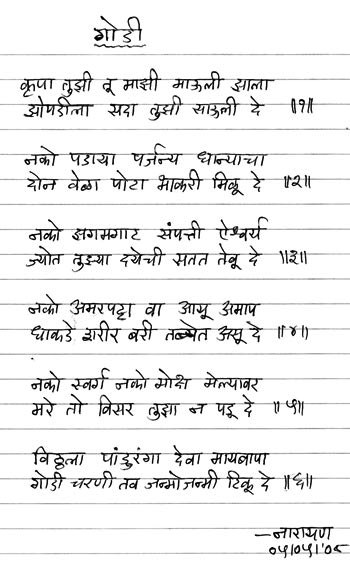 गोडी
कृपा तुझी तू माझी माऊली झाला
झोपडीला सदा तुझी साऊली दे ॥१॥
नको पडाया पर्जन्य धान्याचा
दोन वेळा पोटा भाकरी मिळू दे ॥२॥
नको झगमगाट संपत्ती ऐश्वर्य
ज्योत तुझ्या दयेची सतत तेवू दे ॥३॥
नको अमरपट्टा वा आयू अमाप
धाकडे शरीर बरी तब्येत असू दे ॥४॥
नको स्वर्ग नको मोक्ष मेल्यावर
मरे तो विसर तुझा न पडू दे ॥५॥
विठ्ठला पांडुरंगा देवा मायबापा
गोडी चरणी तव जन्मोजन्मी टिकू दे ॥६॥
—नारायण
०५।०५।'०८